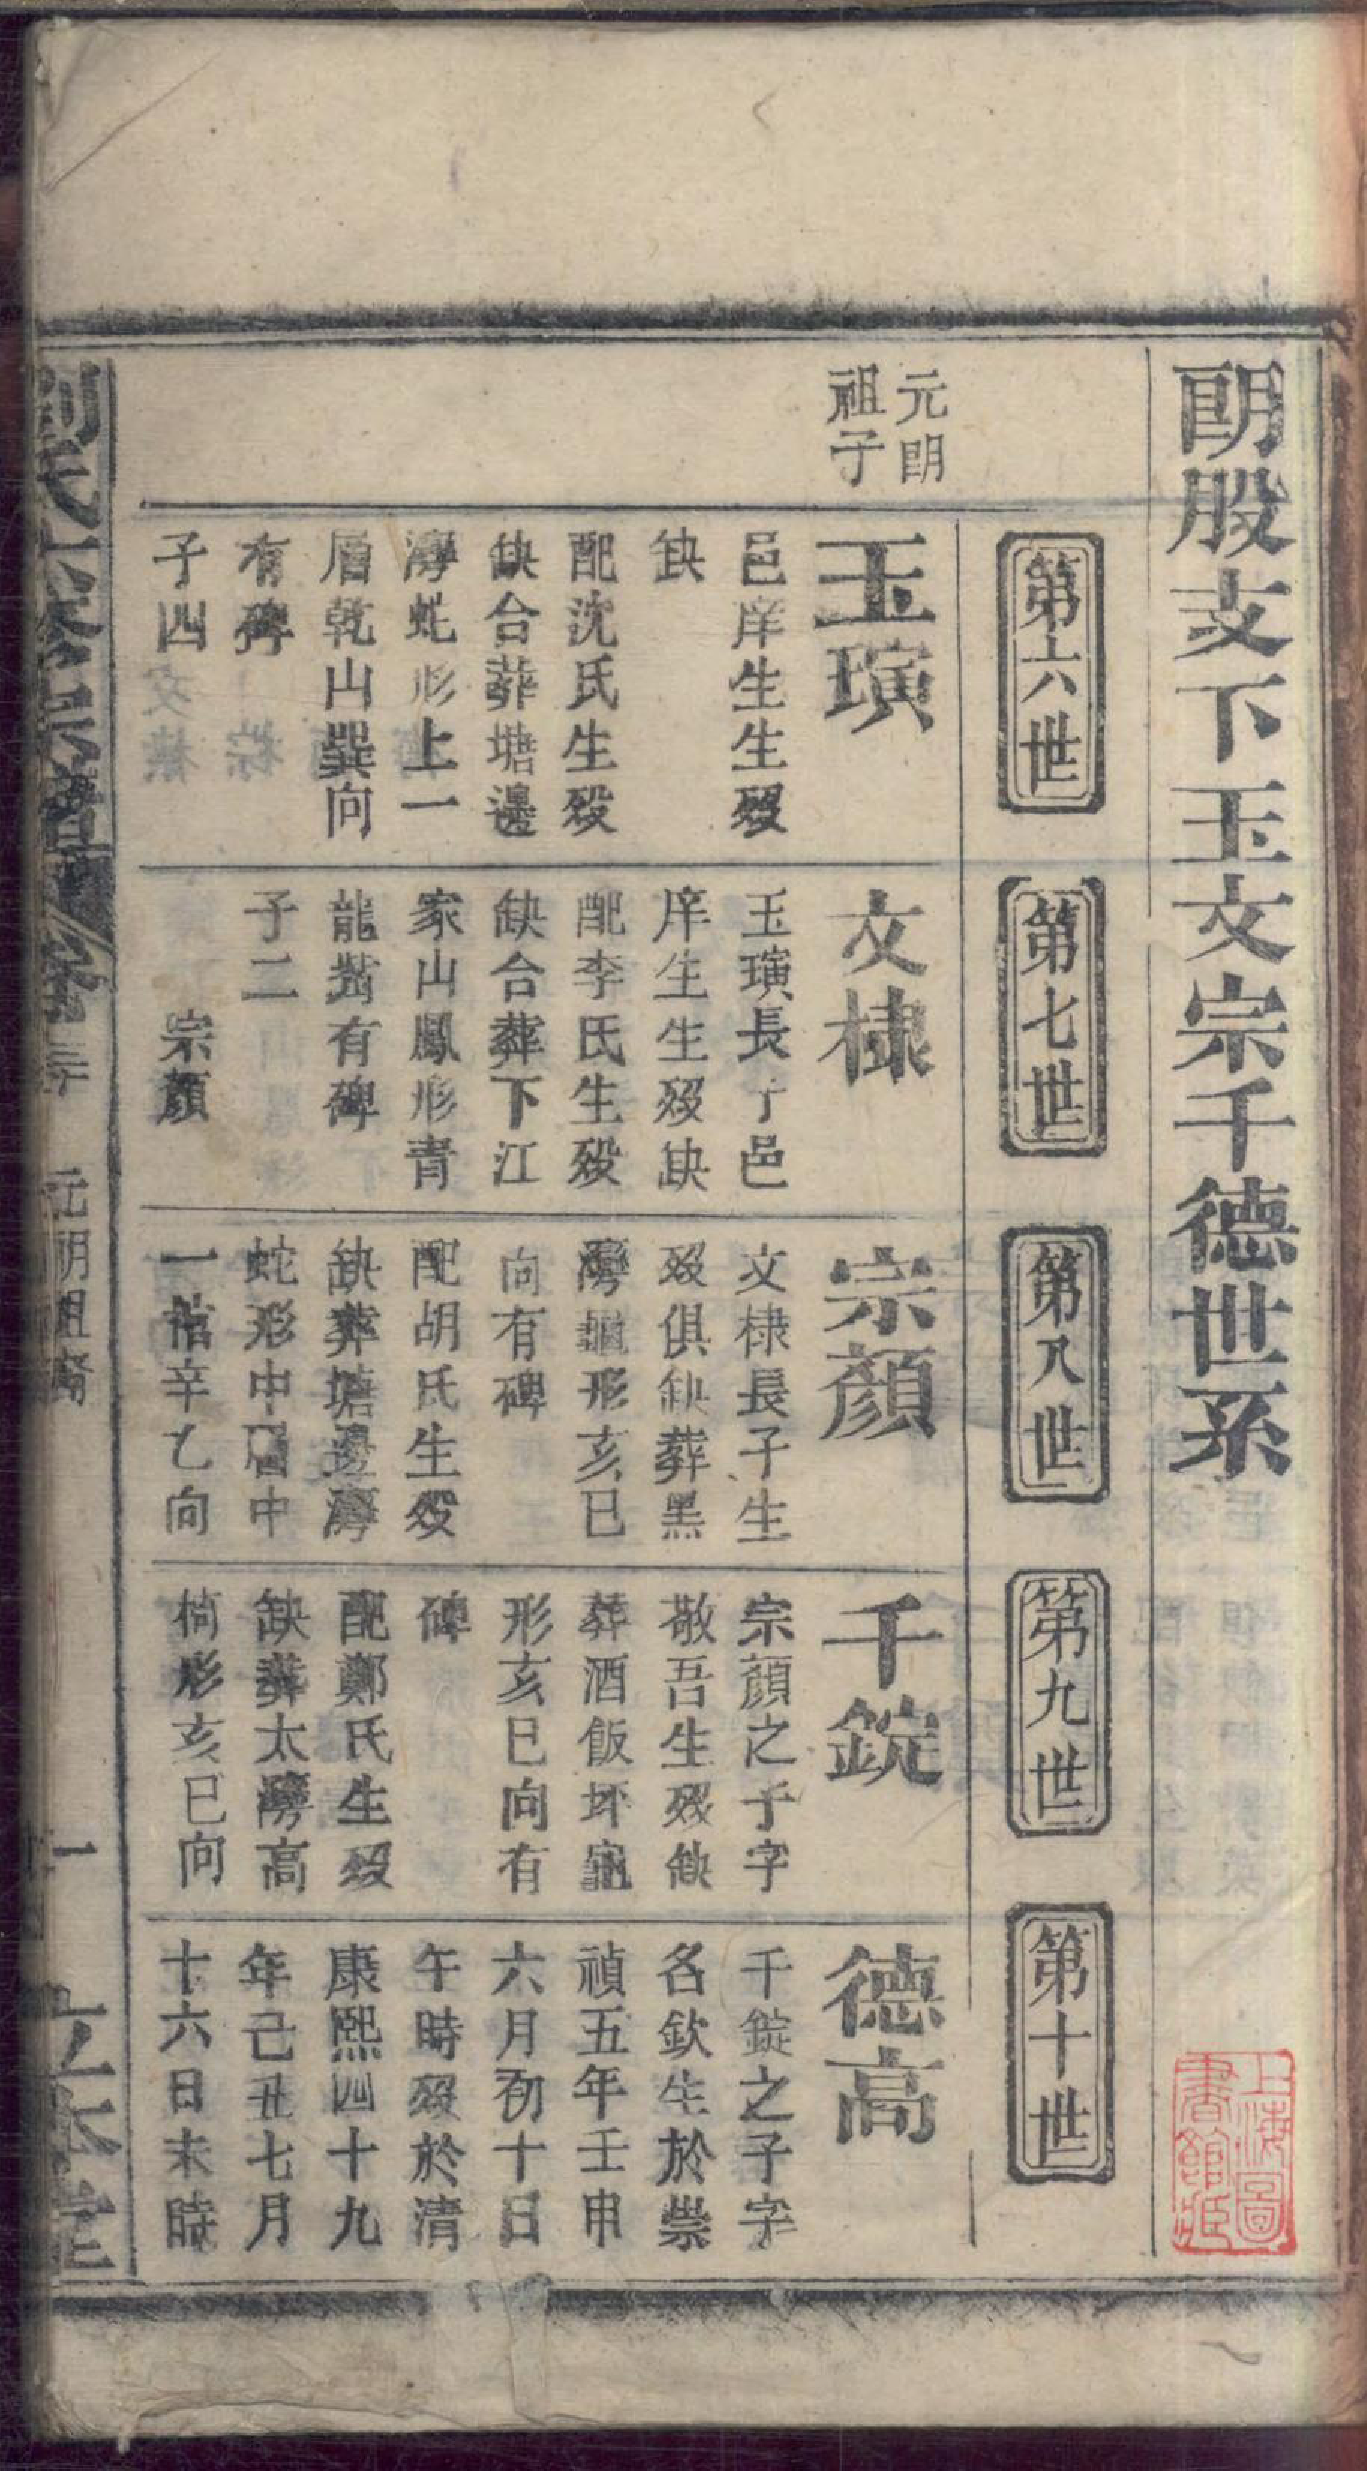 朗股支下玉文宗千德世系
第六世
第七世
第八世
第九世
第十世
元朗
祖子
玉璜
邑庠生生殁
缺
配沈氏生殁
缺合葬塘邊
灣虵形上一
層乾山巽向
有碑
子四
文棣
玉璜長子邑
庠生生殁缺
配李氏生殁
缺合葬下江
家山鳳形青
龍嘴有碑
子二
宗顔
宗顔
文棣長子生
殁俱缺葬黑
灣龜形亥巳
向有碑
配胡氏生殁
缺葬塘邊灣
蛇形中層中
一棺辛乙向
千錠
宗顔之子字
敬吾生殁缺
葬酒飯坏龜
形亥巳向有
碑
配鄭氏生殁
缺葬太灣高
椅形亥巳向
德高
千錠之子字
名欽生於崇
禎五年壬申
六月初十日
午時殁於清
康熙四十九
年己丑七月
十六日未時
劉氏六修宗譜
卷三
元朗祖裔
一
立本堂
上海圖
書館藏